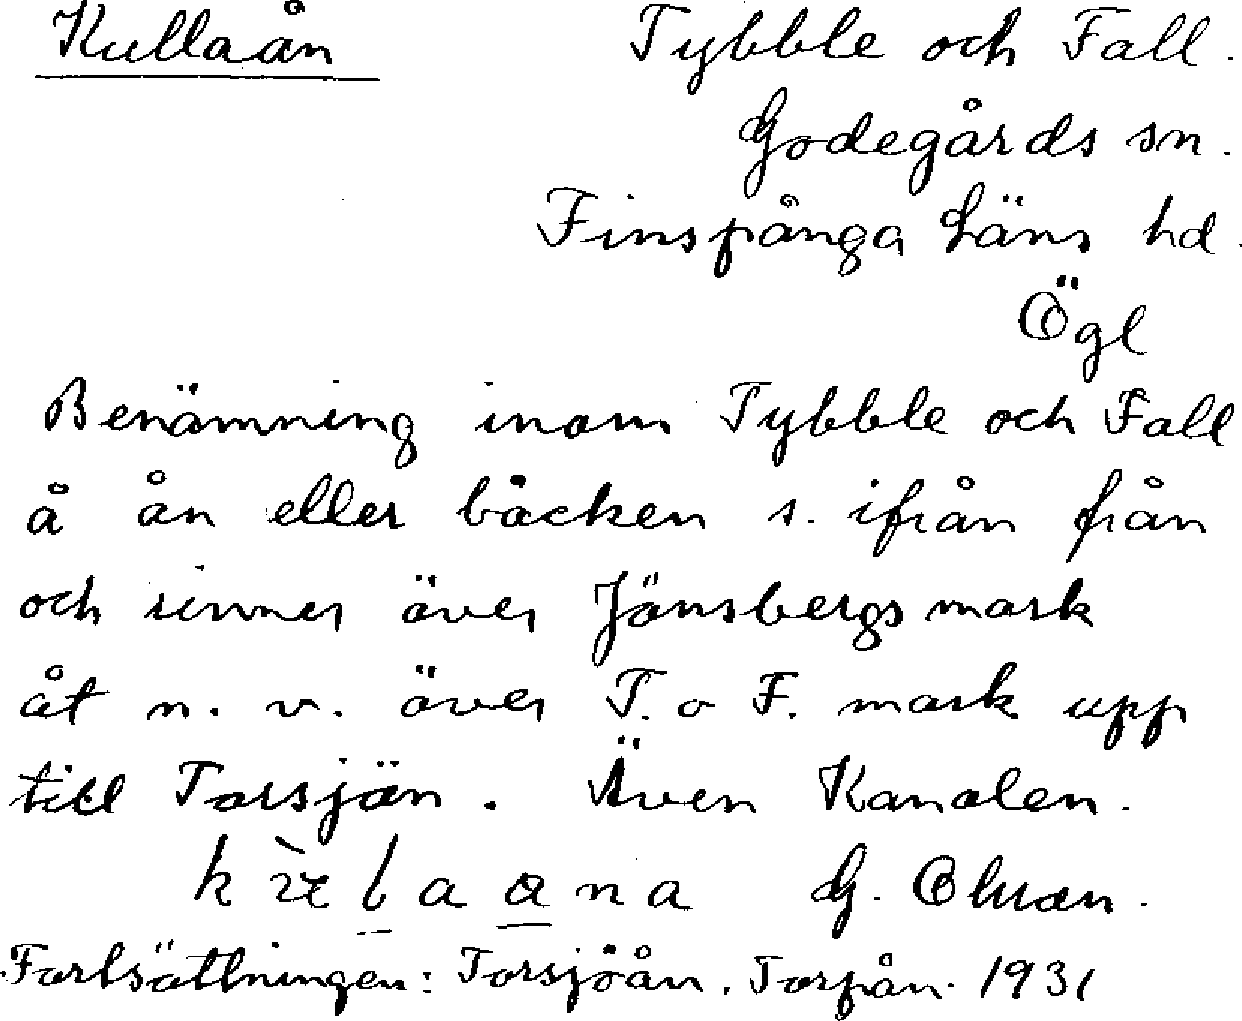 Kullaån
Tybble och Fall.
Godegårds sn.
Finspånga Läns hd.
Ögl
Benämning inom Tybble och Fall
å ån eller båcken s. ifrån från
och rinner över Jönsbergs mark
åt n. v. över T. o F. mark upp
till Torsjön. Även Kanalen.
G.
Fortsättningen: Torsjöån. Torpån. 1931